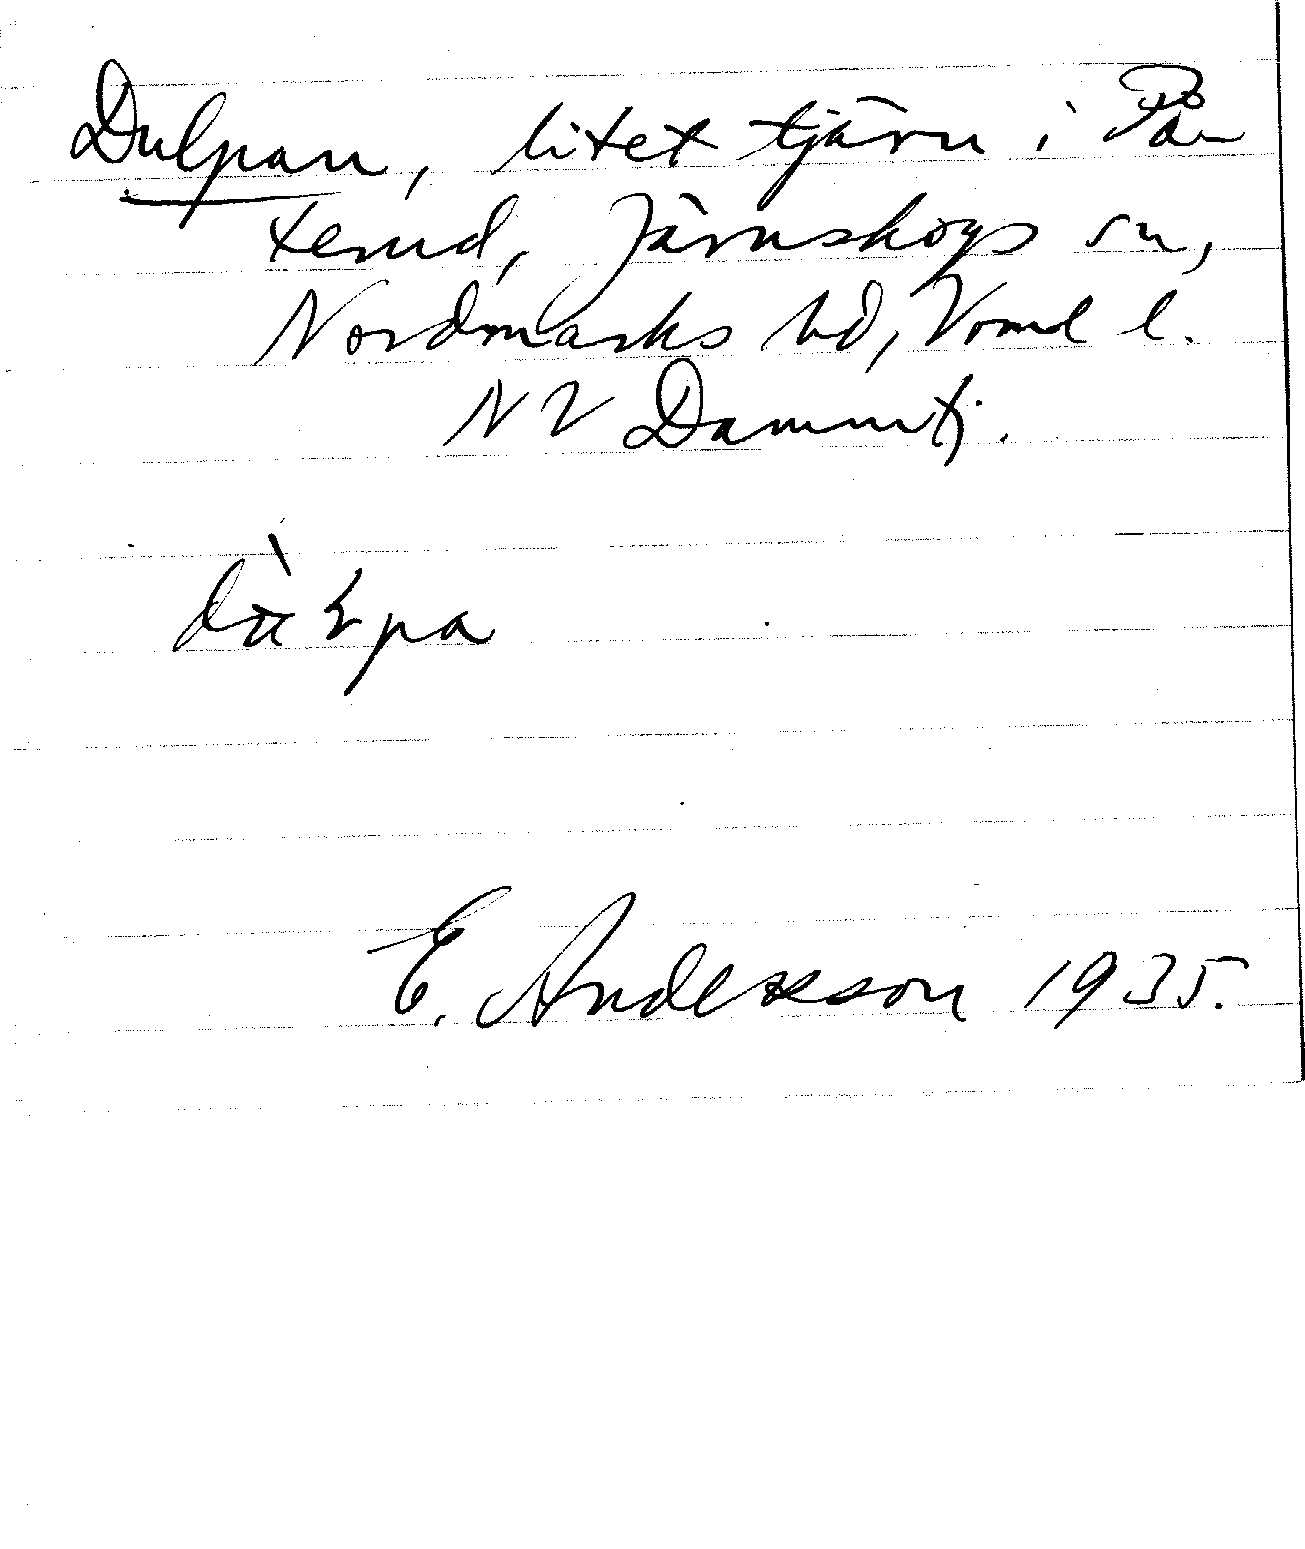 Dulpan, litet tjärn i Pån
terud, Järnskogs sn,
Nordmarks hd, Vrml l.
NV Dammtj.
E. Andersson 1935.